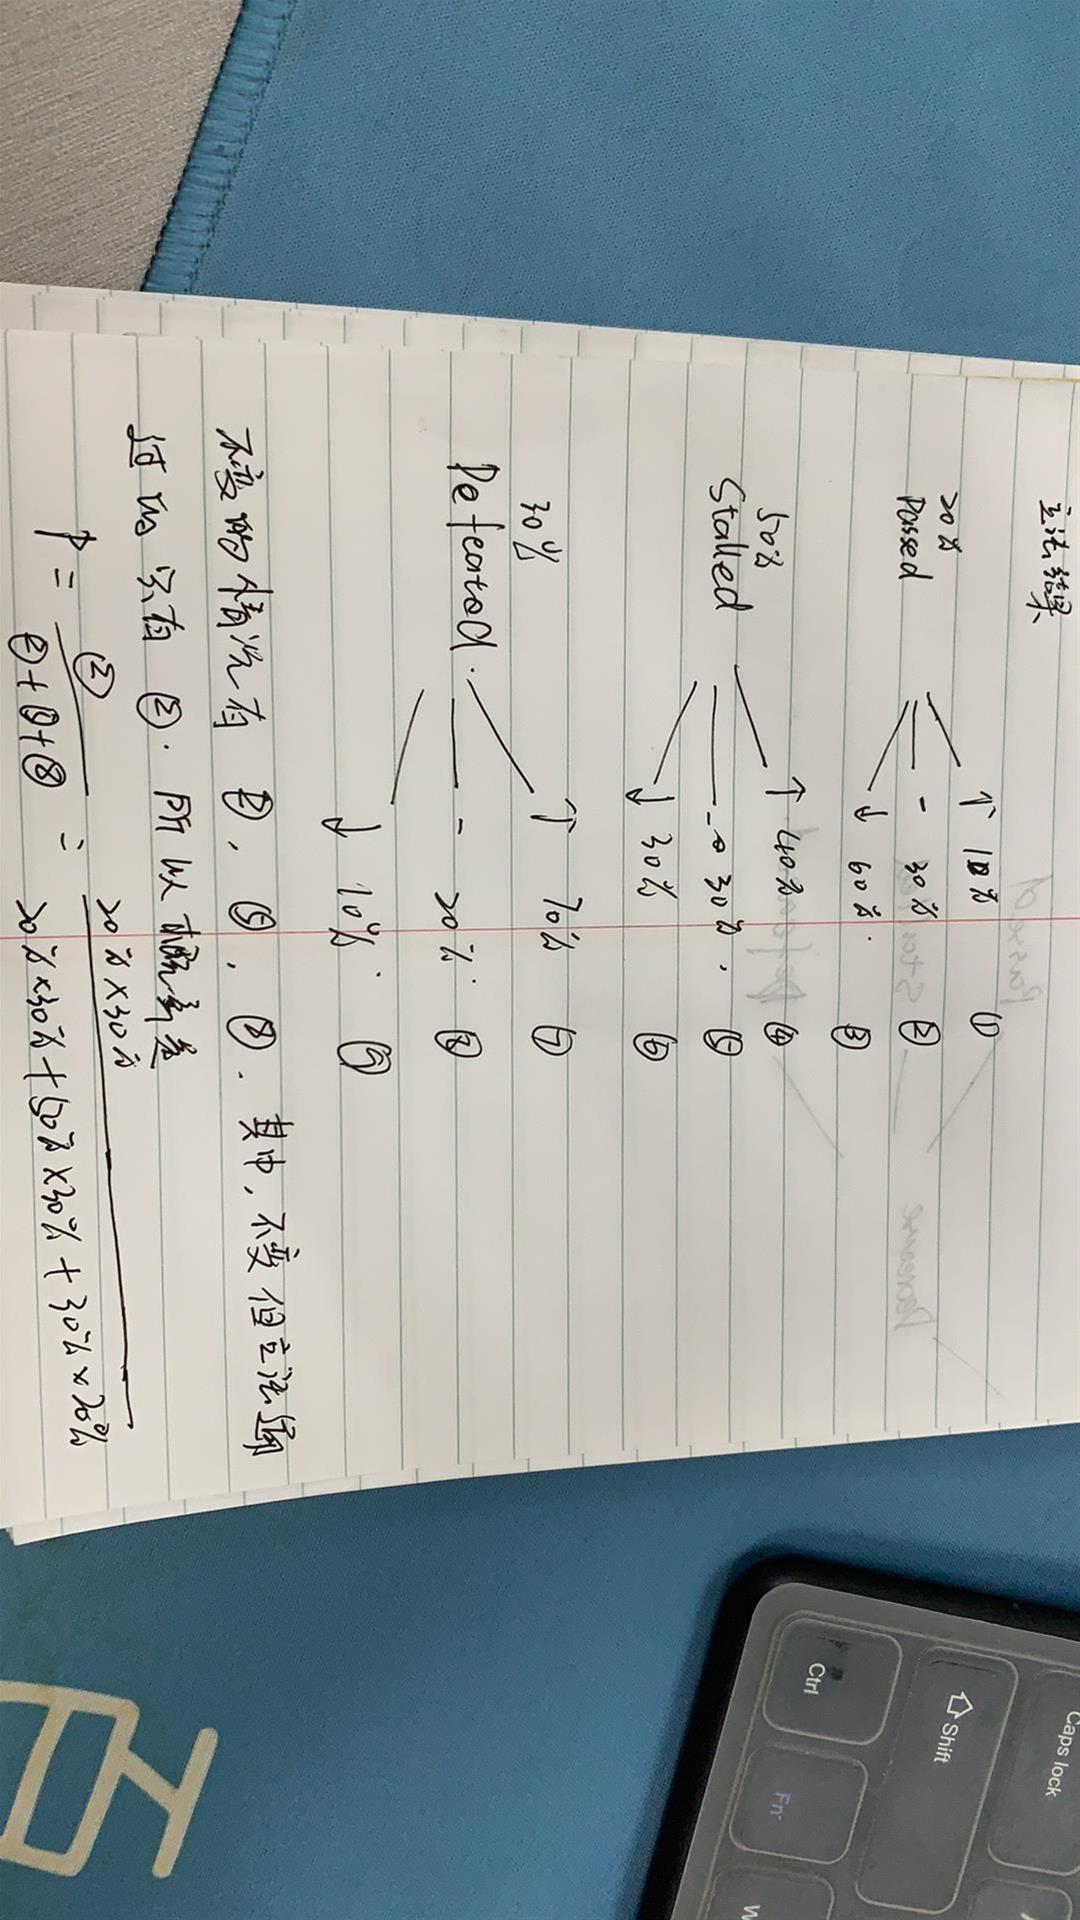 立法结果
↑ 10% ①
20%
Passed - 30% ②
↓ 60%. ③
↑ 40% ④
50%
Stalled - 30%. ⑤
↓ 30% ⑥
↑ 70% ⑦
30%
Defeated. - 20%. ⑧
↓ 10%. ⑨
不变的情况有 ②, ⑤, ⑧. 其中, 不变但立法通
过的 只有 ②. 所以概率为
P = ② / ②+⑤+⑧ = 20%×30% / 20%×30%+50%×30%+30%×20%
Caps lock
Shift
Ctrl
Fn
W